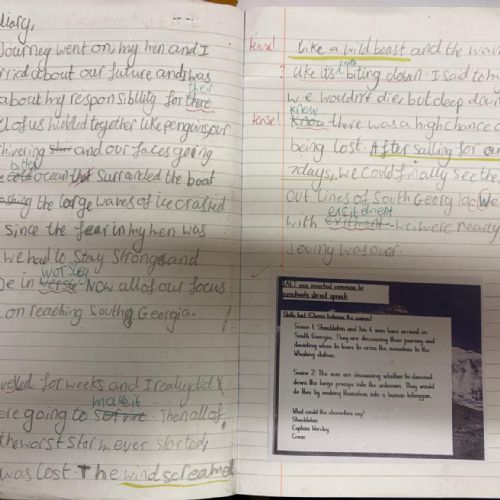 diary,
Journey went on, my hen and I
rried about our future and was
about my responsibility for there their
l of us hudded together like penguins our
hivering and our faces going
e cold ocean that Surranded the boat
the large waves of ice crashed
since the fear in my hen was
we had to stay strong and
e in verse worsley. Now all of our focus
on reaching South Georgia.
velled for weeks and I really did't
ere going to make it. Then all of
the worst storm ever started,
was lost. The wind screamed
tense! Like a wild beast and the wave
like its teeth biting down. I said to my
we wouldn't die, but deep down
tense! know knew there was a high chance o
being lost. After sailing for an
7days, we could finally see the
out lines of South Georgia. We
with excitment excitement. we were nearly
journy was over.
LAL: I use inverted commas to
punctuate direct speech
Skills task (Choose between the scenes)
Scene 1: Shackleton and his 4 men have arrived on
South Georgia. They are discussing their journey and
deciding when to leave to cross the mountains to the
Whaling station.
Scene 2: The men are discussing whether to descend
down the large precipe into the unknown. They would
do this by making themselves into a human toboggan.
What would the characters say?
Shackleton
Captain Worsley
Crean